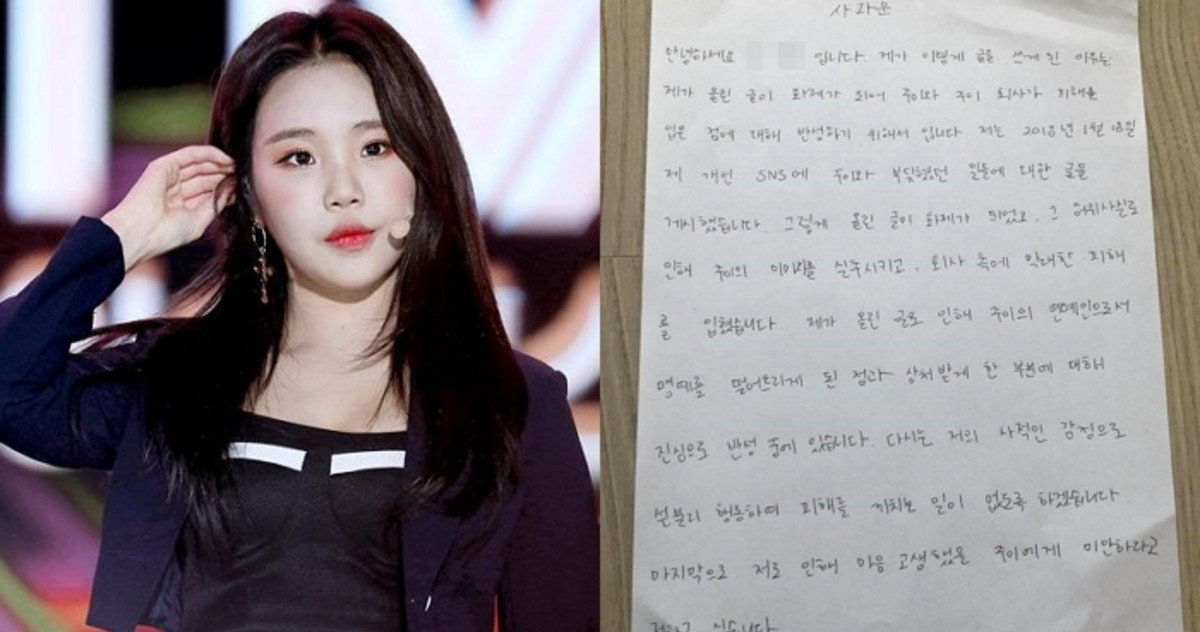 사과문
안녕하세요 입니다. 제가 이렇게 글을 쓰게 된 이유는
제가 올린 글이 화제가 되어 주이와 주이 회사가 피해를
입은 점에 대해 반성하기 위해서 입니다 저는 2018년 1월 18일
제 개인 SNS에 주이와 부딪혔던 일들에 대한 글을
게시했습니다. 그렇게 올린 글이 화제가 되었고, 그 허위사실로
인해 주이의 이미지를 실추시키고, 회사 측에 막대한 피해
를 입혔습니다. 제가 올린 글로 인해 주이의 연예인으로서
명예를 떨어뜨리게 된 점과 상처받게 한 부분에 대하여
진심으로 반성 중에 있습니다. 다시는 저의 사적인 감정으로
섣불리 행동하여 피해를 끼치는 일이 없도록 하겠습니다.
마지막으로 저로 인해 마음 고생했을 주이에게 미안하다고
전하고 싶습니다